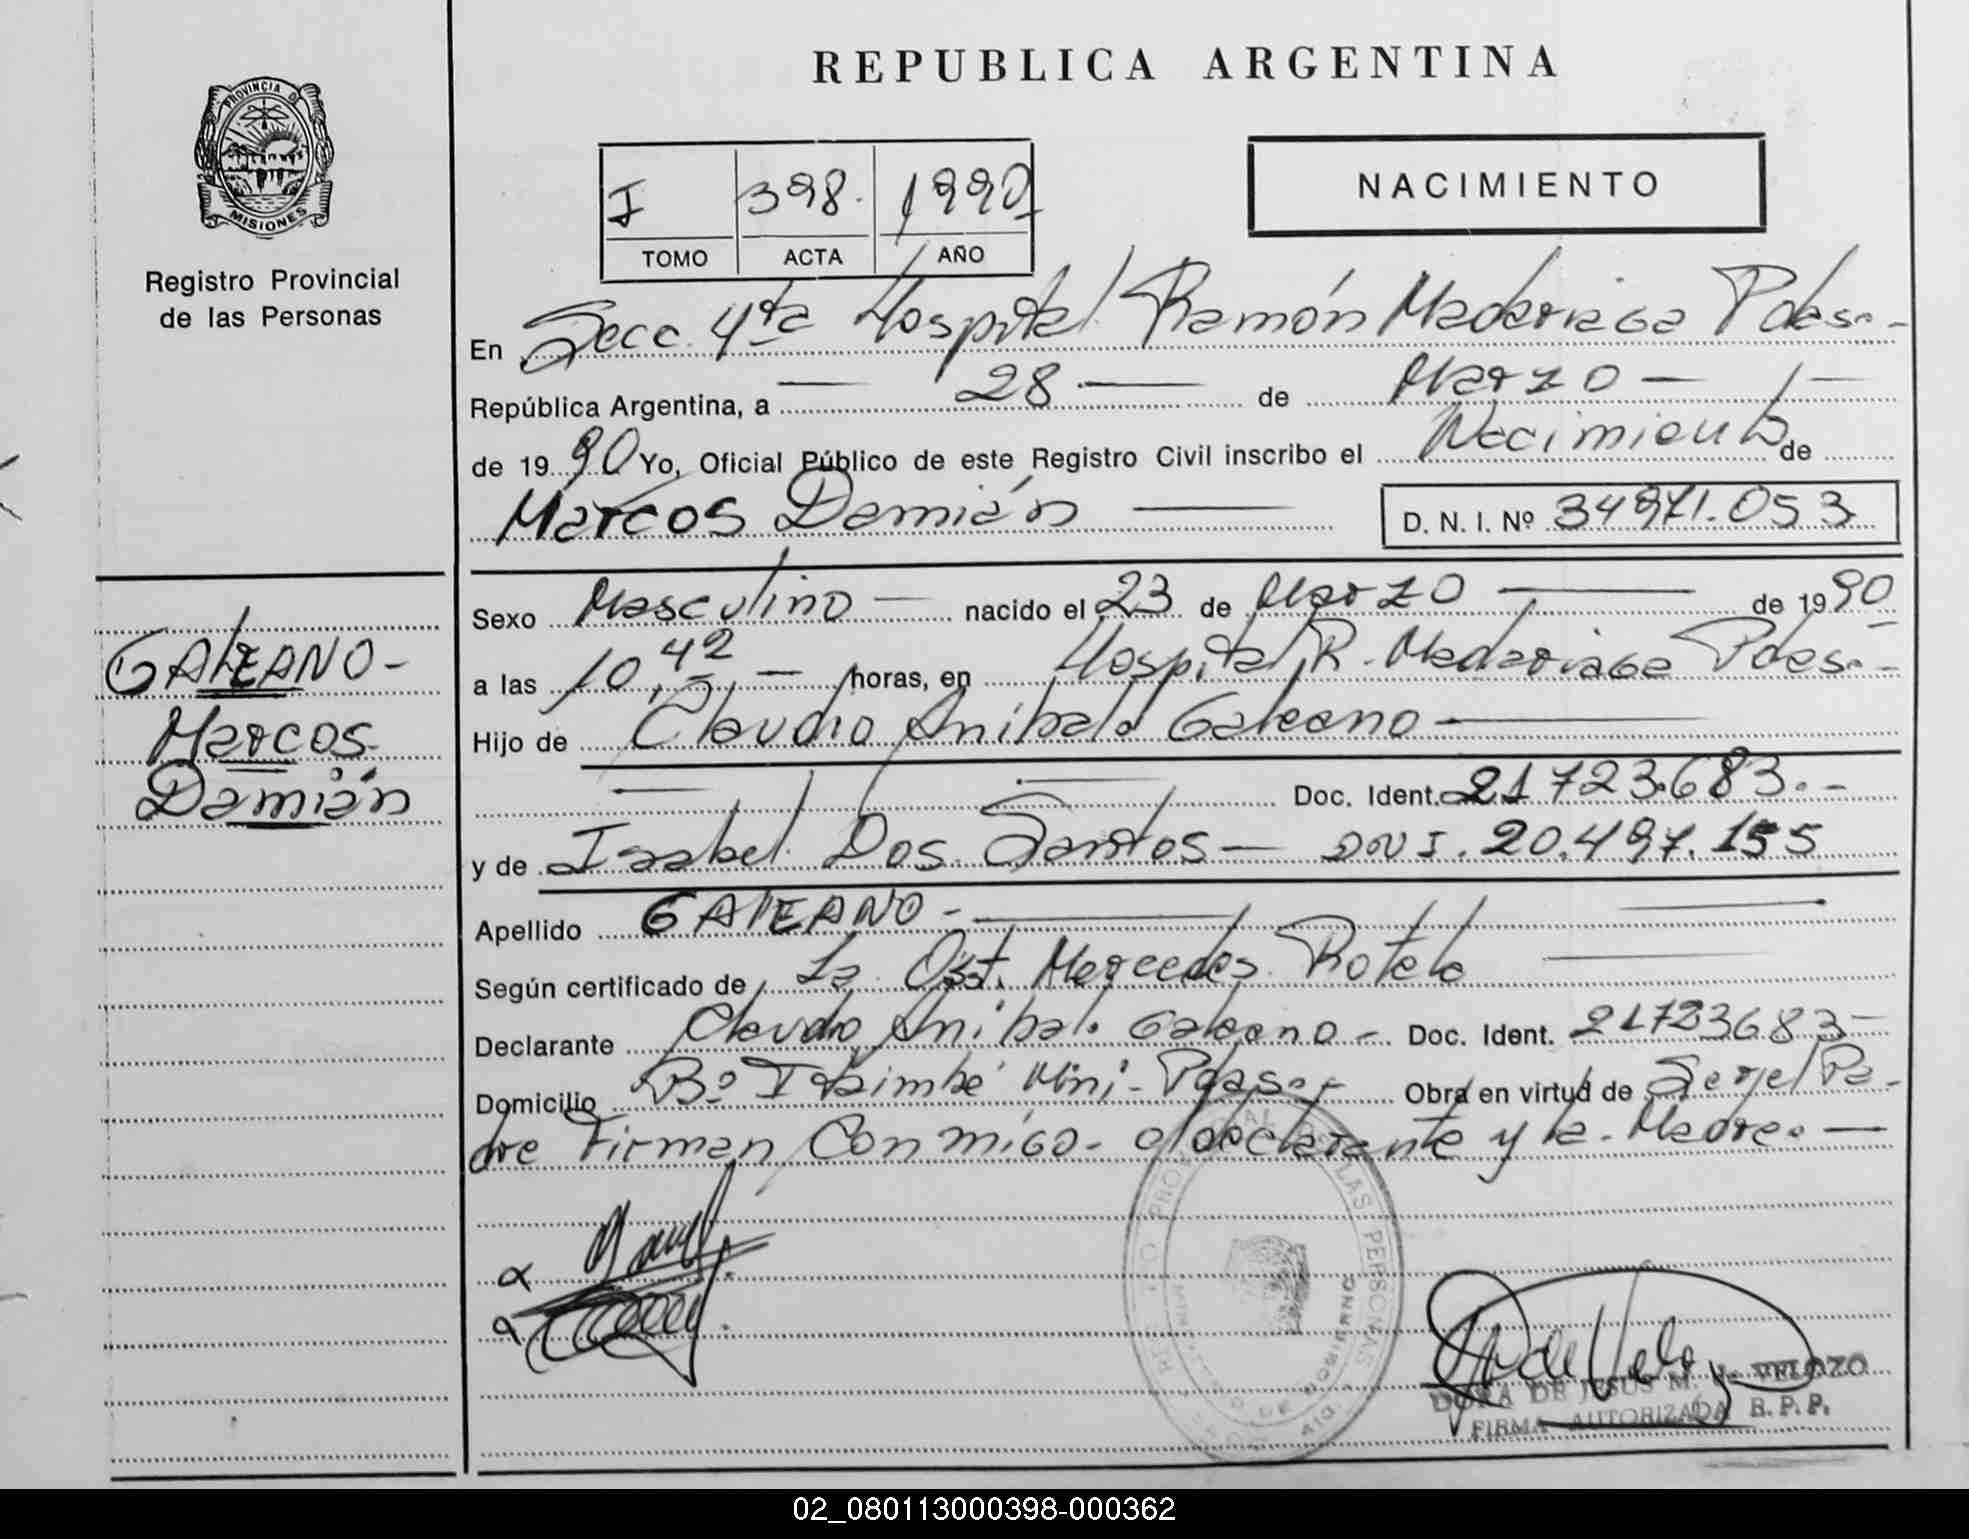 REPUBLICA ARGENTINA
PROVINCIA DE
MISIONES
Registro Provincial
de las Personas
I 398. 1990
TOMO ACTA AÑO
NACIMIENTO
En Secc. 4ta Hospital Ramón Madariaga Pdas.-
República Argentina, a — 28 — de Marzo —
de 1990 Yo, Oficial Público de este Registro Civil inscribo el Nacimiento de
Marcos Damián — D. N. I. Nº 34971.053
Sexo Masculino — nacido el 23 de Marzo — de 1990
a las 10,42 — horas, en Hospital R. Madariaga Pdas.-
Hijo de Claudio Anibal Galeano —
— Doc. Ident. 21723.683.-
y de Isabel Dos Santos — DNI. 20.497.155
Apellido GALEANO - —
Según certificado de La Obst. Mercedes Rotela —
Declarante Claudio Anibal Galeano - Doc. Ident. 21723683-
Domicilio Bº Itaimbé Mini - Pdas.- Obra en virtud de Ser el Pa-
dre Firman Conmigo - el declarante y la Madre. —
GALEANO -
Marcos
Damián
LAS PERSONAS
MINISTERIO DE GOBIERNO
DORA DE JESUS M. DE VELOZO
FIRMA AUTORIZADA R. P. P.
02_080113000398-000362